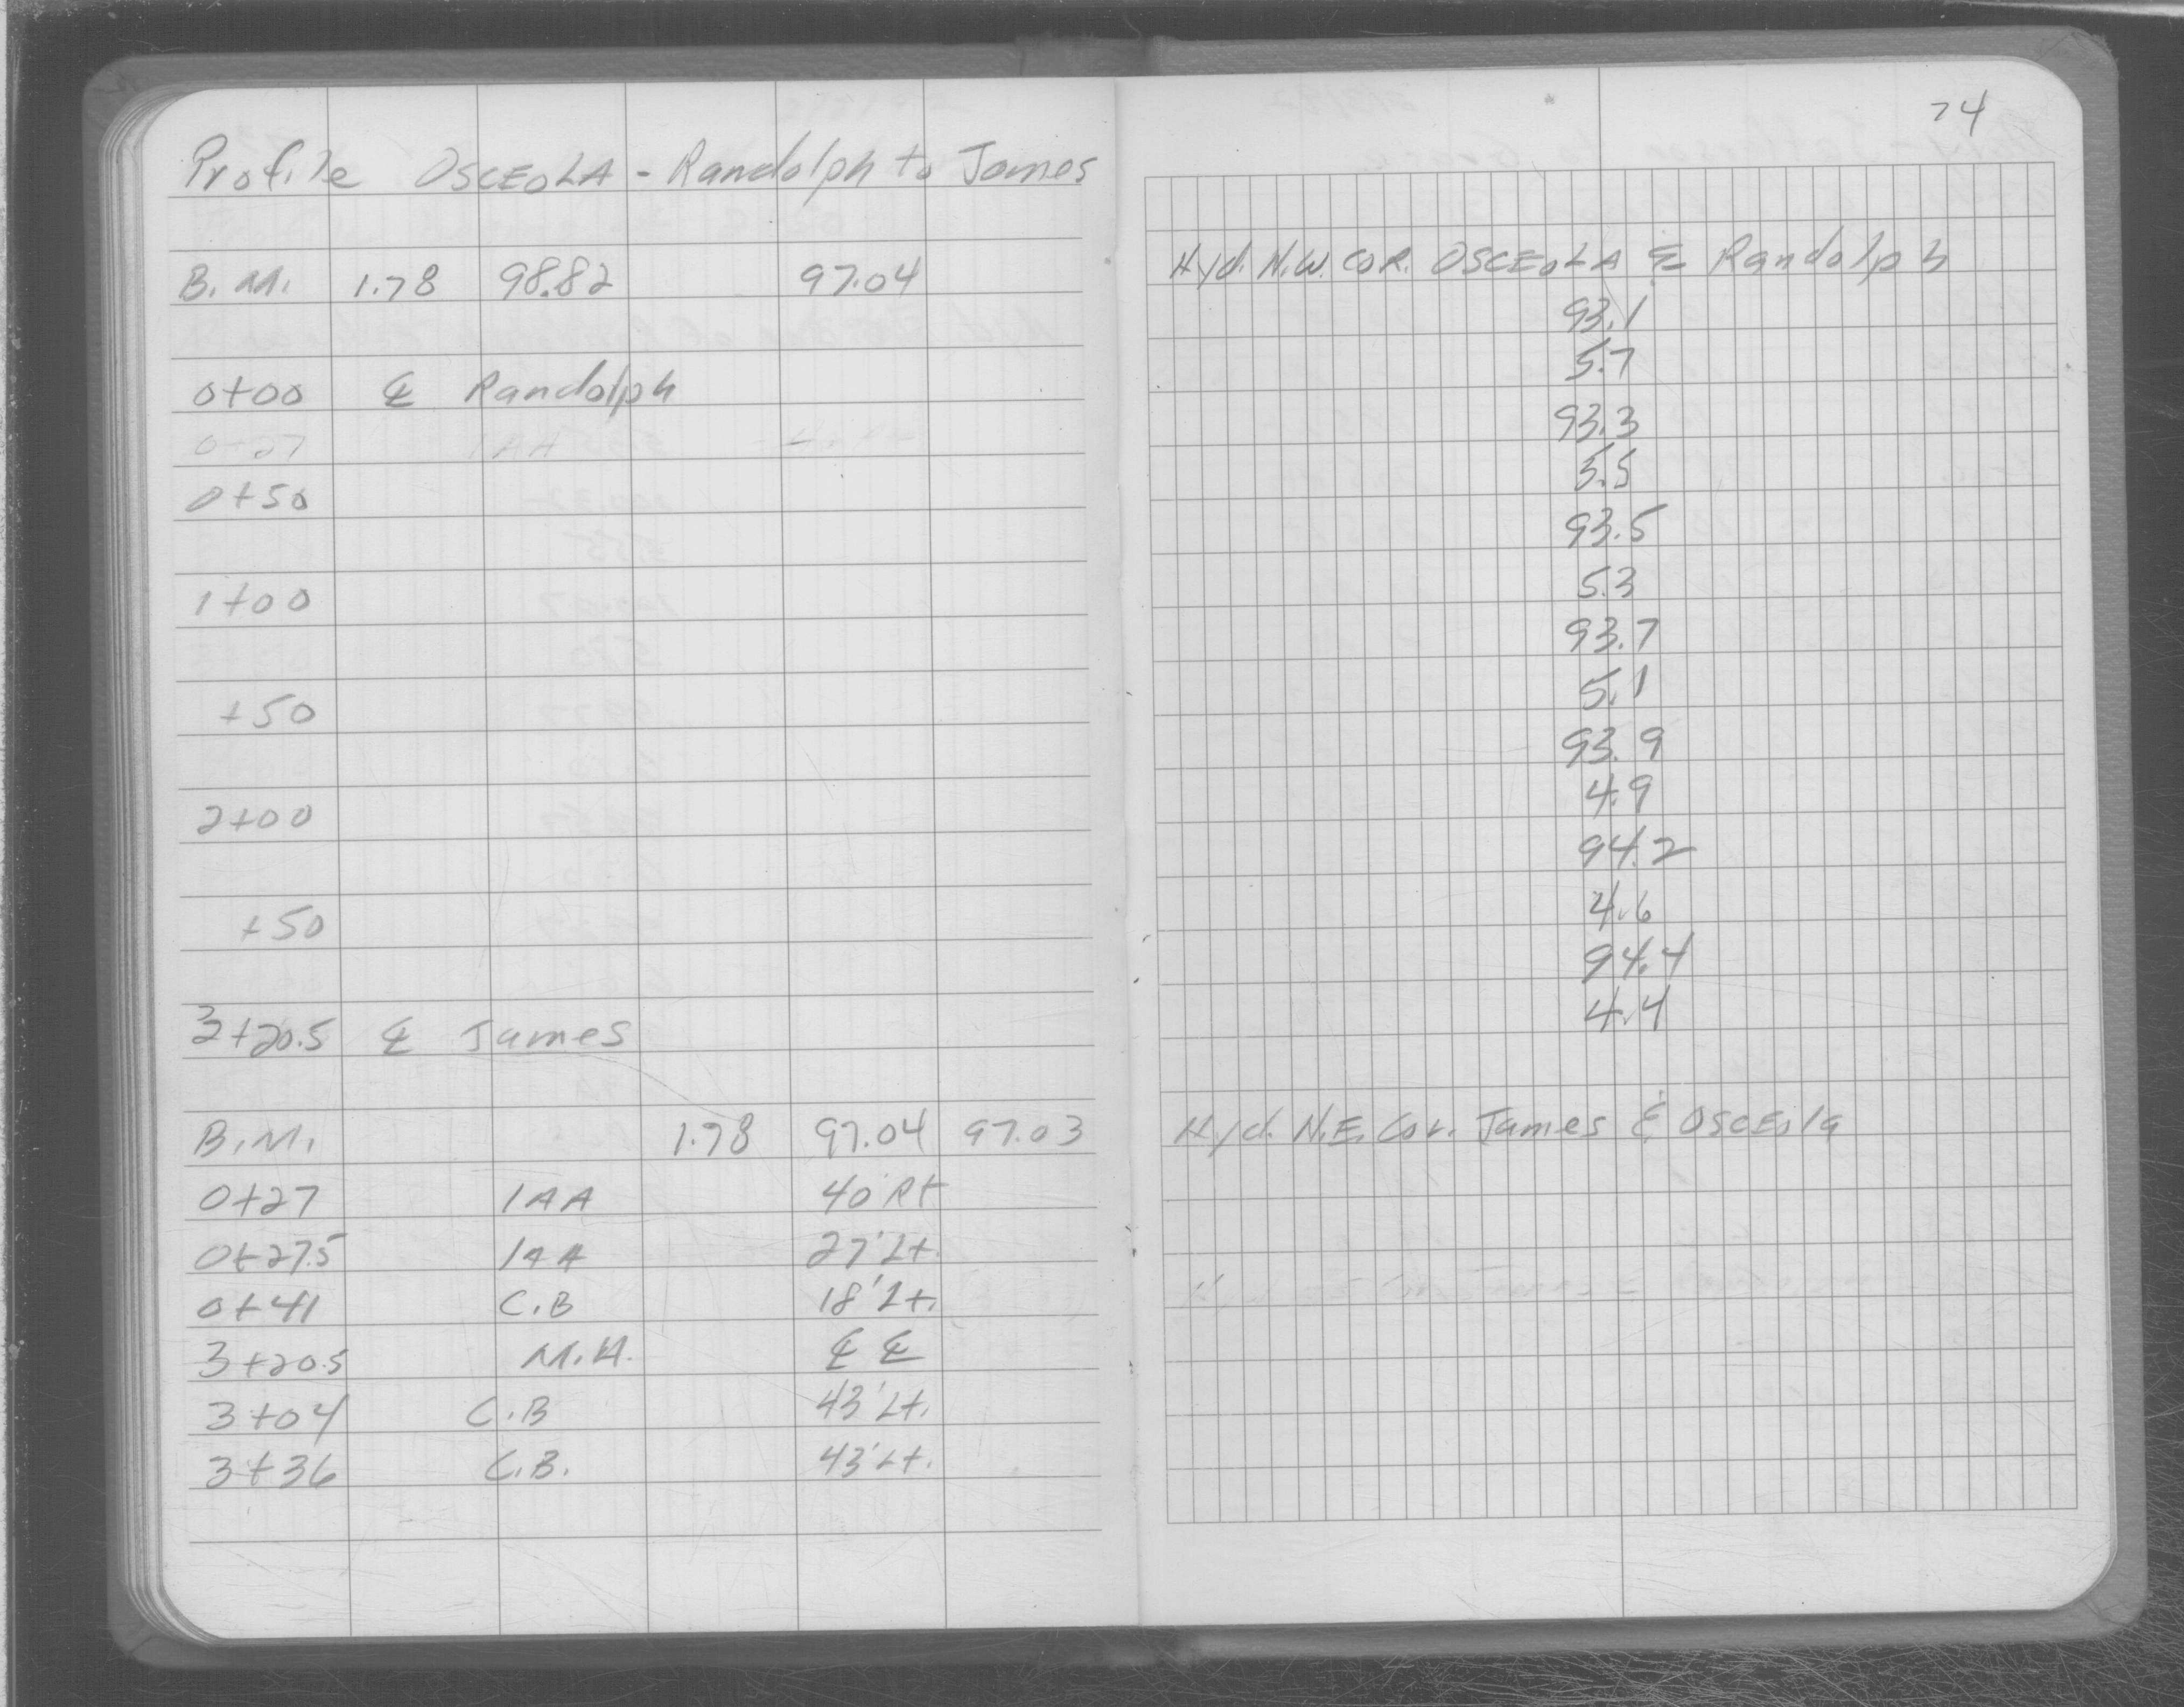 Profile OSCEOLA - Randolph to James
B.M. 1.78 98.82 97.04
0+00 ℄ Randolph
0+27 1AA
0+50
1+00
+50
2+00
+50
3+20.5 ℄ James
B.M. 1.78 97.04 97.03
0+27 1AA 40' Rt
0+27.5 1AA 27' Lt.
0+41 C.B 18' Lt.
3+20.5 M.H. ℄ ℄
3+04 C.B 43' Lt.
3+36 C.B. 43' Lt.
74
Hyd. N.W. COR. OSCEOLA & Randolph
93.1
5.7
93.3
5.5
93.5
5.3
93.7
5.1
93.9
4.9
94.2
4.6
94.4
4.4
Hyd. N.E. Cor. James & OSCEola